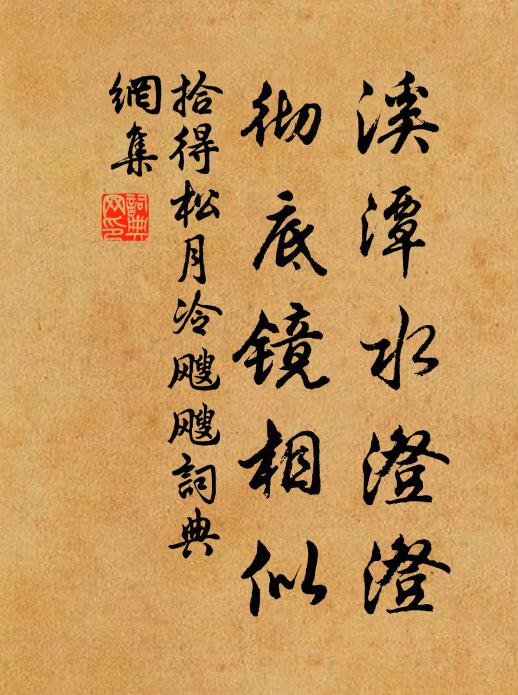 溪潭水澄澄
彻底镜相似
拾得松月冷飕飕詞典
網集
詞典網印